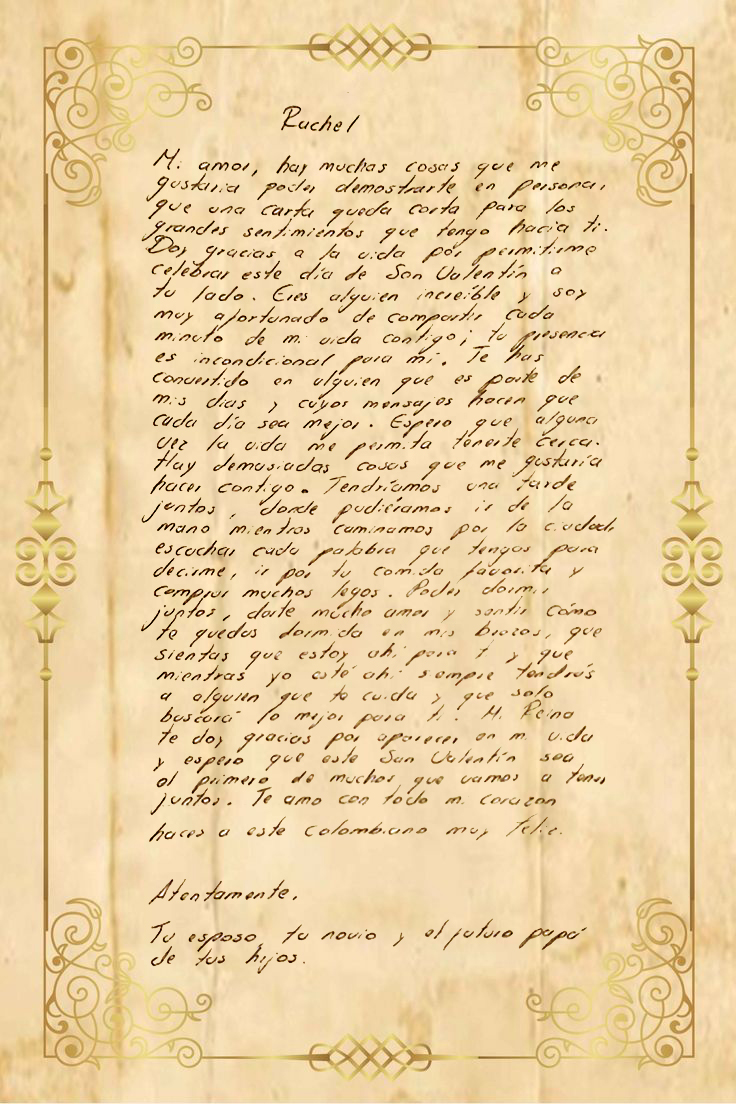 Rachel
Mi amor, hay muchas cosas que me
gustaria poder demostrarte en persona,
que una carta queda corta para los
grandes sentimientos que tengo hacia ti.
Doy gracias a la vida por permitirme
celebrar este día de San Valentín a
tu lado. Eres alguien increíble y soy
muy afortunado de compartir cada
minuto de mi vida contigo; tu presencia
es incondicional para mí. Te has
convertido en alguien que es parte de
mis días y cuyos mensajes hacen que
cada día sea mejor. Espero que alguna
vez la vida me permita tenerte cerca.
Hay demasiadas cosas que me gustaría
hacer contigo. Tendríamos una tarde
juntos, donde pudiéramos ir de la
mano mientras caminamos por la ciudad,
escuchar cada palabra que tengas para
decirme, ir por tu comida favorita y
comprar muchos legos. Poder dormir
juntos, darte mucho amor y sentir cómo
te quedas dormida en mis brazos, que
sientas que estoy ahí para ti y que
mientras yo esté ahí siempre tendrás
a alguien que te cuida y que solo
buscará lo mejor para ti. Mi Reina
te doy gracias por aparecer en mi vida
y espero que este San Valentín sea
el primero de muchos que vamos a tener
juntos. Te amo con todo mi corazon
haces a este colombiano muy feliz.
Atentamente,
Tu esposo, tu novio y el futuro papá
de tus hijos.